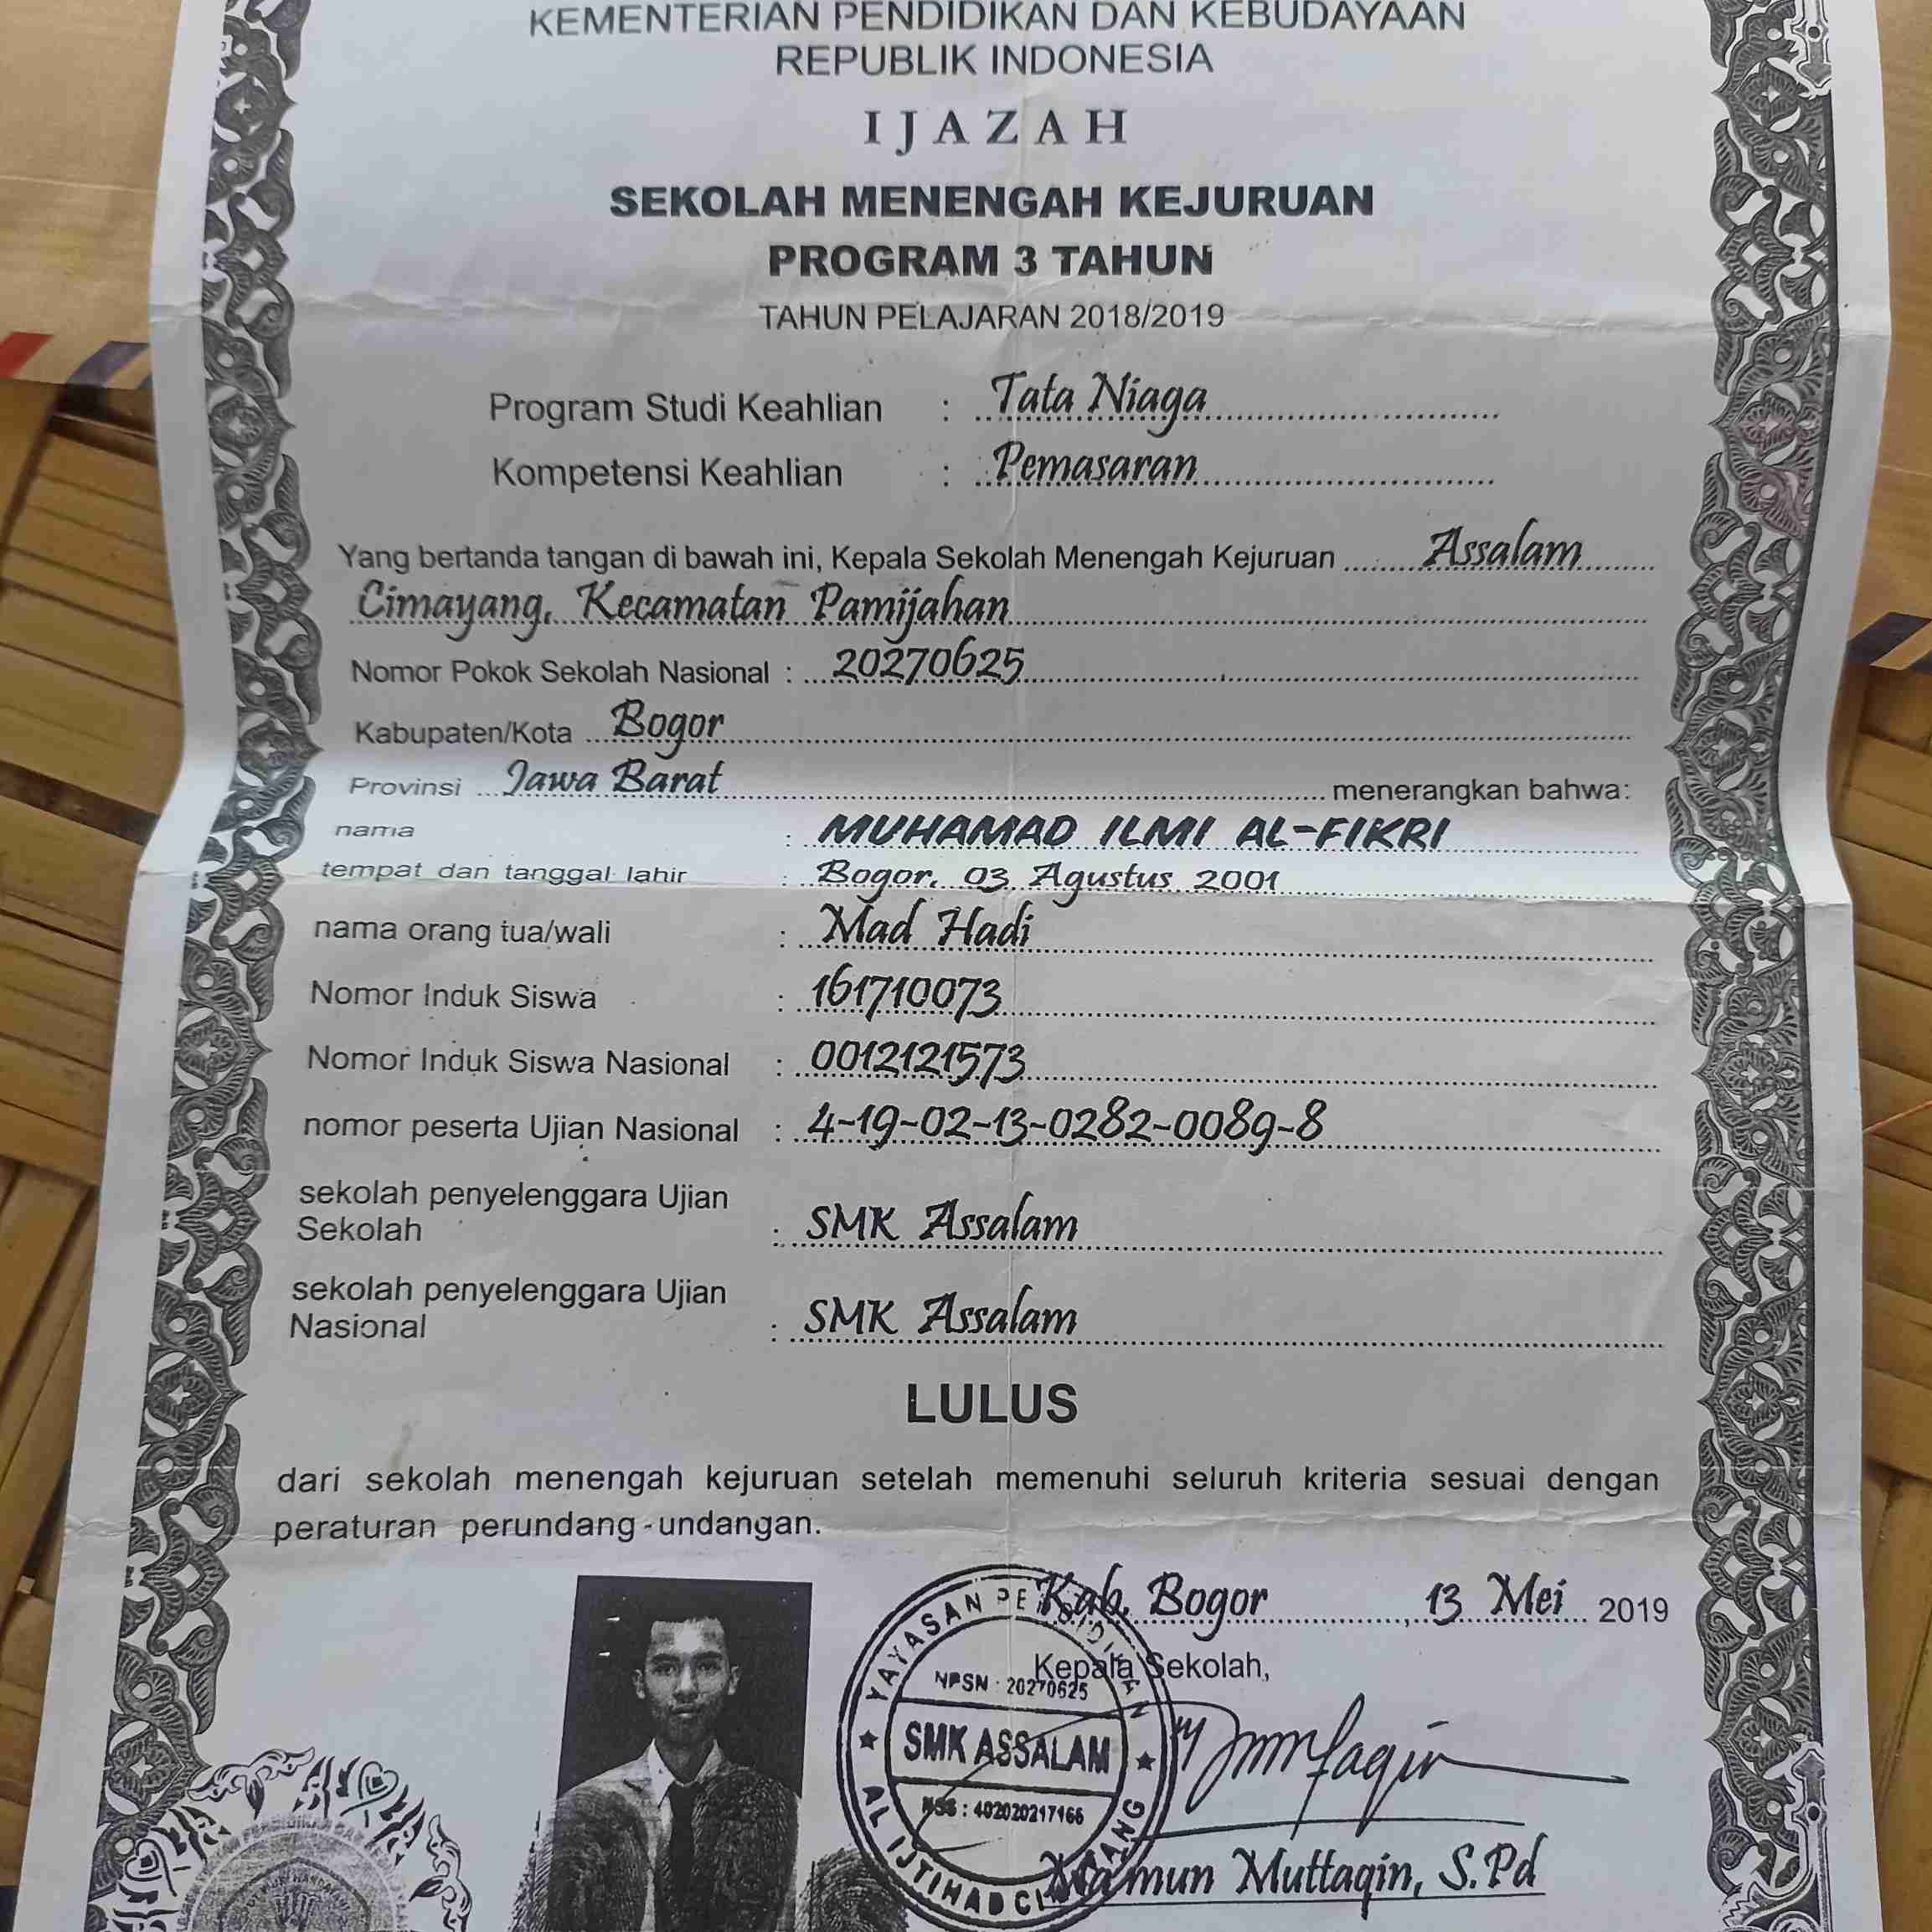 KEMENTERIAN PENDIDIKAN DAN KEBUDAYAAN
REPUBLIK INDONESIA
IJAZAH
SEKOLAH MENENGAH KEJURUAN
PROGRAM 3 TAHUN
TAHUN PELAJARAN 2018/2019
Program Studi Keahlian : Tata Niaga
Kompetensi Keahlian : Pemasaran
Yang bertanda tangan di bawah ini, Kepala Sekolah Menengah Kejuruan Assalam
Cimayang, Kecamatan Pamijahan
Nomor Pokok Sekolah Nasional : 20270625
Kabupaten/Kota Bogor
Provinsi Jawa Barat menerangkan bahwa:
nama : MUHAMAD ILMI AL-FIKRI
tempat dan tanggal lahir : Bogor, 03 Agustus 2001
nama orang tua/wali : Mad Hadi
Nomor Induk Siswa : 161710073
Nomor Induk Siswa Nasional : 0012121573
nomor peserta Ujian Nasional : 4-19-02-13-0282-0089-8
sekolah penyelenggara Ujian
Sekolah : SMK Assalam
sekolah penyelenggara Ujian
Nasional : SMK Assalam
LULUS
dari sekolah menengah kejuruan setelah memenuhi seluruh kriteria sesuai dengan
peraturan perundang-undangan.
Kab. Bogor, 13 Mei 2019
Kepala Sekolah,
YAYASAN PENDIDIKAN
NPSN : 20270625
SMK ASSALAM
NSS : 402020217166
AL IJTIHAD
Ma'mun Muttaqin, S.Pd